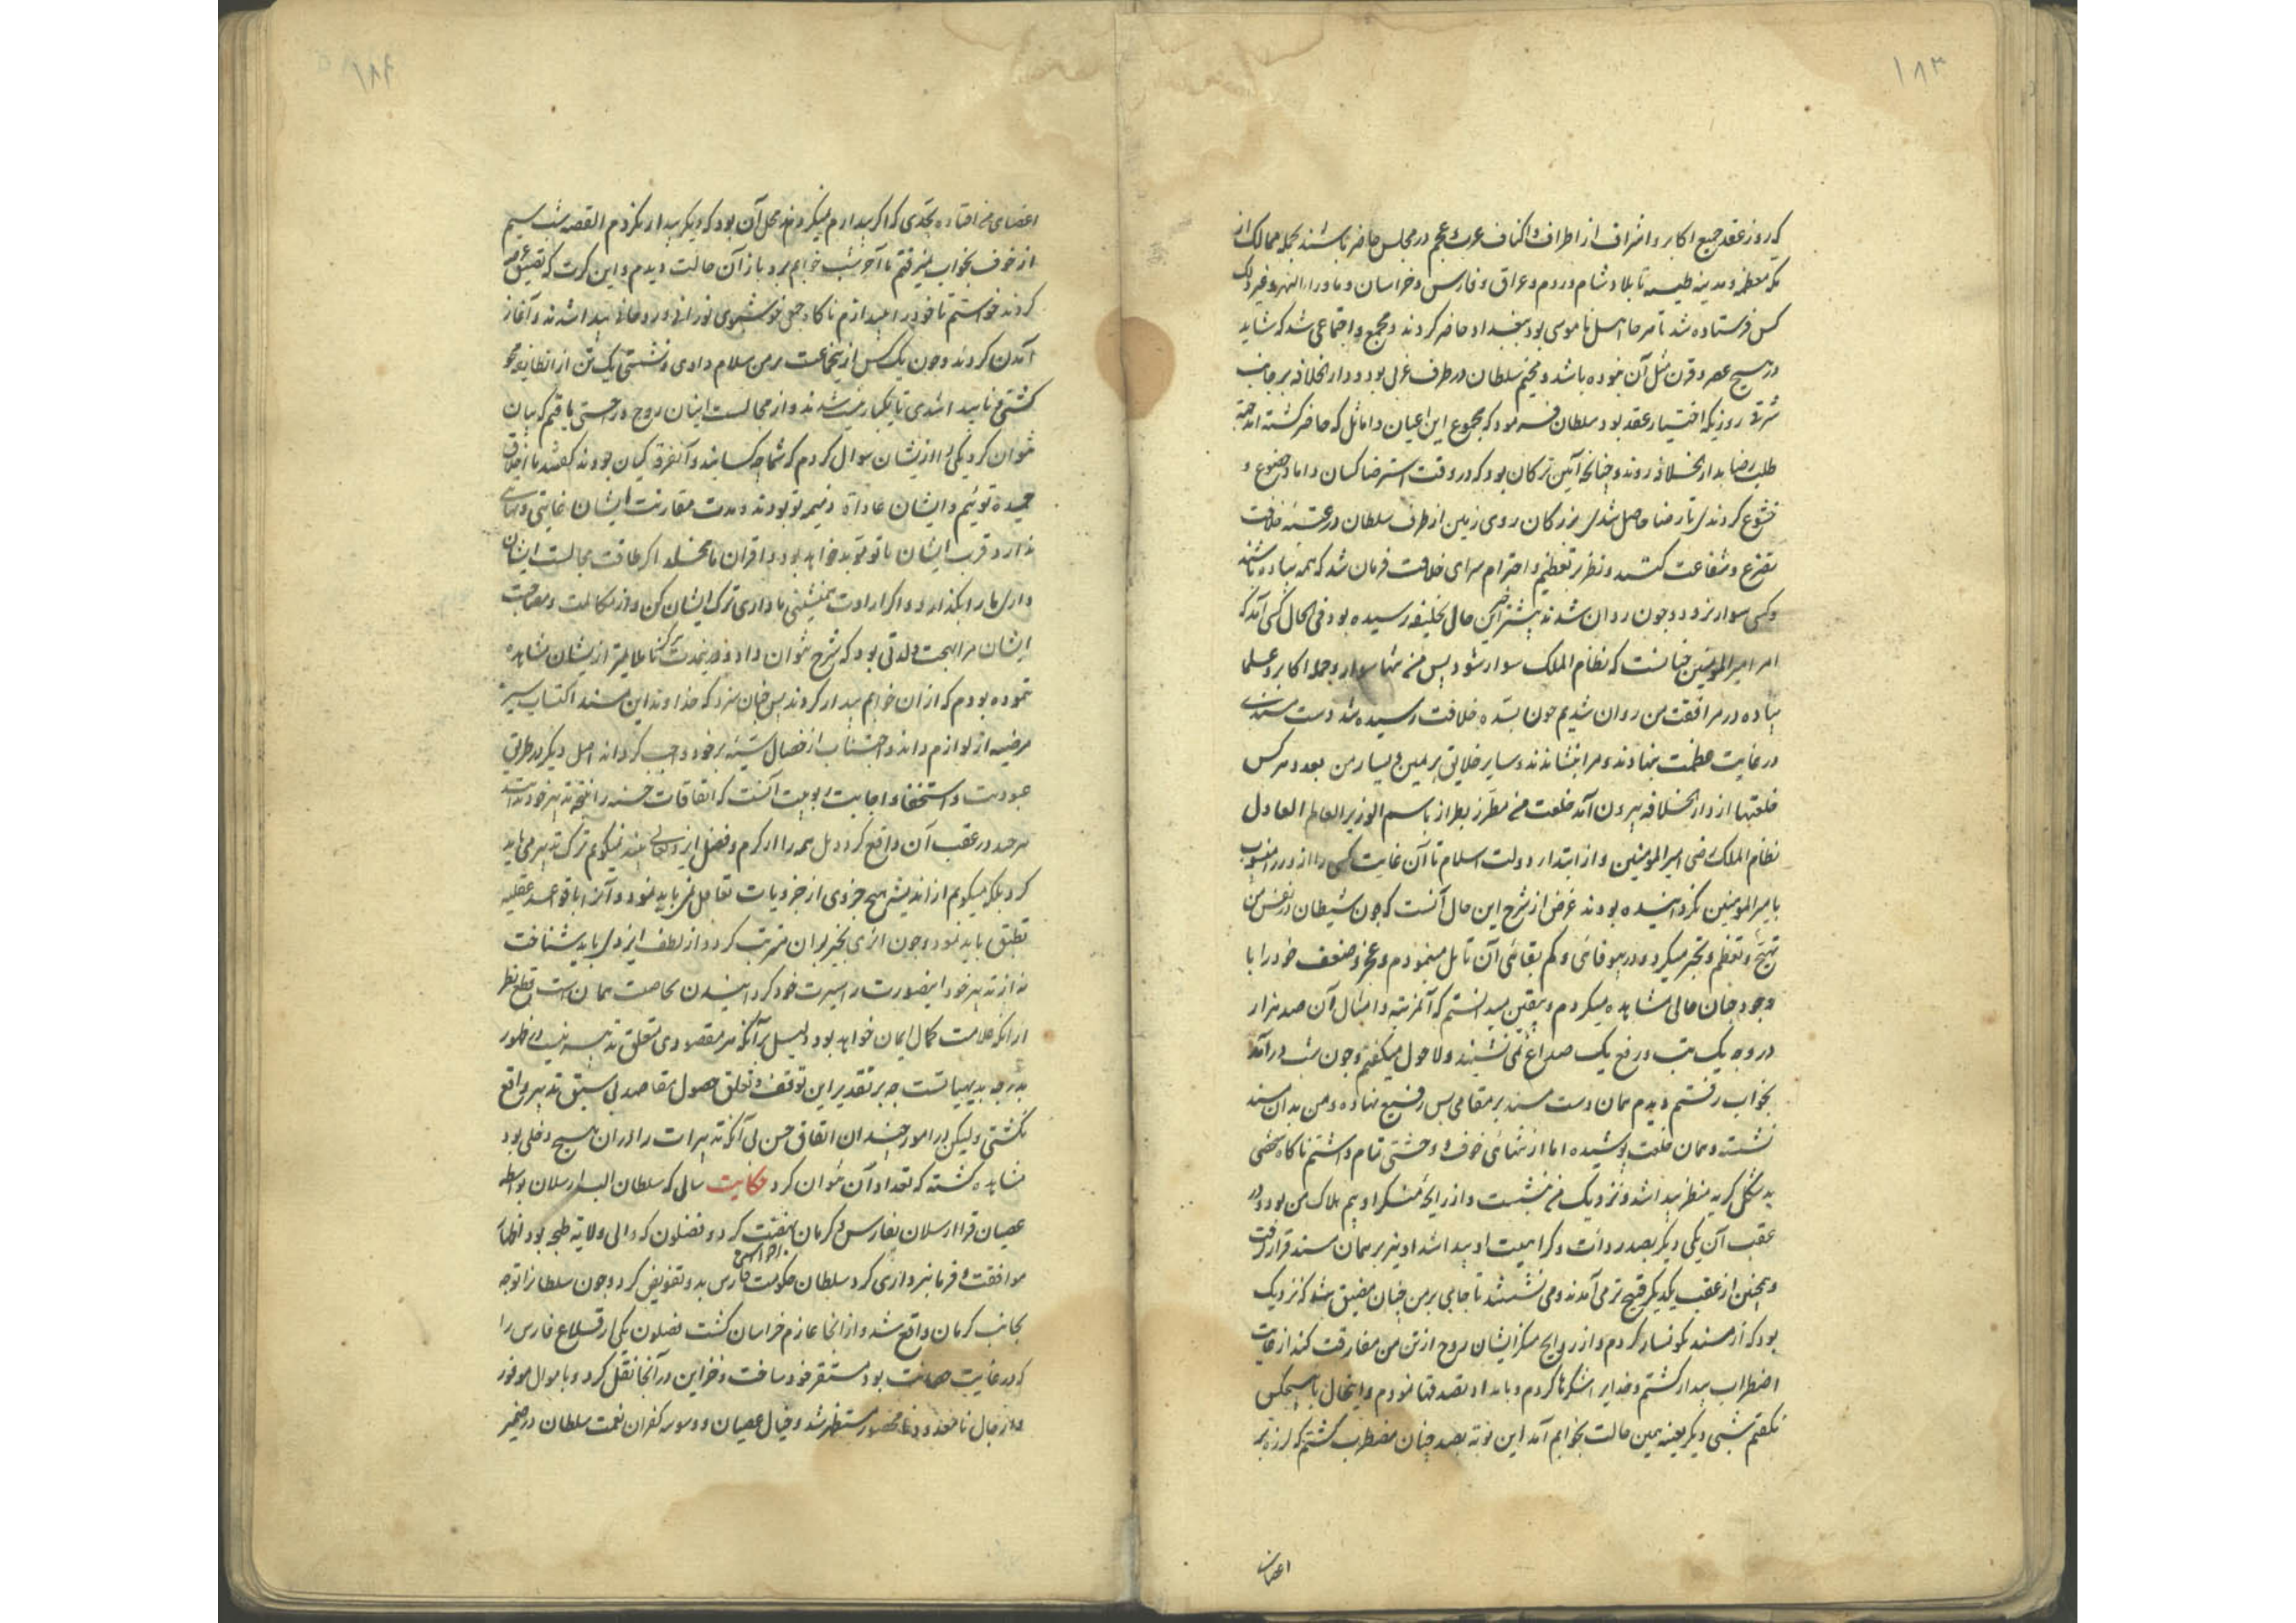 ۱۸۳
که روز عقد جمیع اکابر و اشراف از اطراف و اکناف عرب و عجم در مجلس حاضر باشند بجمله ممالک از
مکه معظمه و مدینه طیبه تا بلاد شام و روم و عراق و فارس و خراسان و ماوراء النهر و غیر ذلک
کس فرستاده شد تا هر جا اهل ناموسی بود ببغداد حاضر کردند و مجمع و اجتماعی شد که شاید
در هیچ عصر و قرن مثل آن نبوده باشد و مخیم سلطان در طرف غربی بود و دار الخلافه بر جانب
شرقی روزیکه اختیار عقد بود سلطان فرمود که مجموع این اعیان و اماثل که حاضر گشته اند جهة
طلب رضا بدار الخلافه روند و چنانچه آیین ترکان بود که در وقت استرضا کسان داماد خضوع و
خشوع کردندی تا رضا حاصل شدی بزرگان روی زمین از طرف سلطان در عتبه خلافت
تضرع و شفاعت کنند و نظر بر تعظیم و احترام سرای خلافت فرمان شد که همه پیاده باشند
و کسی سوار نرود و چون روان شدند پیشتر خبر این حال بخلیفه رسیده بود فی الحال کسی آمد که
امر امیر المومنین چنانست که نظام الملک سوار شود پس من تنها سوار و جمله اکابر و علما
پیاده در مرافقت من روان شدیم چون بسده خلافت رسیده شد دست مسندی
در غایت عظمت بنهادند و مرا بنشاندند و سایر خلایق بر یمین و یسار من بعد و هر کس
خلعتها از دار الخلافه بیرون آمد خلعت من مطرز بطراز باسم الوزیر العالم العادل
نظام الملک رضی امیر المومنین و از ابتداء دولت اسلام تا آن غایت کسی را از وزرا منسوب
بامیر المومنین نگردانیده بودند غرض از شرح این حال آنست که چون شیطان در نفس من
تهیج و تعظم و تجبر میکرد و در بیوفائی و کم بقائی آن تامل مینمودم و عجز و ضعف خود را با
وجود چنان حالی مشاهده میکردم و بیقین میدانستم که آنمرتبه و امثال آن صد هزار
در وجه یک تب و رفع یک صداع نمی نشیند و لا حول میگفتم و چون شب درآمد
بخواب رفتم دیدم همان دست مسند بر مقامی بس رفیع نهاده و من بدان مسند
نشسته و همان خلعت پوشیده اما از تنهائی خوف و وحشتی تمام داشتم ناگاه شخصی
بد شکل کریه منظر پیدا شد و نزدیک من بنشست و از رایحه منکر او بیم هلاک من بود و در
عقب آن یکی دیگر بصد ردائت و کراهیت او پیدا شد او نیز بر همان مسند قرار گرفت
و همچنین از عقب یکدیگر قبیح تر می آمدند و می نشستند تا جای بر من چنان مضیق شد که نزدیک
بود که از مسند نگونسار گردم و از روایح منکر ایشان روح از تن من مفارقت کند از غایت
اضطراب بیدار گشتم و خدایرا شکرها کردم و بامداد تصدقها نمودم و اینحال با هیچکس
نگفتم شبی دیگر بعینه همین حالت بخوابم آمد این نوبه بصد چنان مضطرب گشتم که لرزه بر
اعضای
۱۸۴
اعضای من افتاده بحدی که اگر بیدارم نمیکردند محل آن بود که دیگر بیدار نگردم القصه شب سیم
از خوف بخواب نمیرفتم تا آخر شب خوابم برد باز آن حالت دیدم و این کرت که تضییق
کردند خواستم تا خود را بیندازم ناگاه جمعی خوشبوی نورانی و روحانی پیدا شدند و آغاز
آمدن کردند و چون یک کس از یجماعت بر من سلام دادی و نشستی یک تن از انطایفه محو
گشتی و ناپیدا شدی تا بیکبار نیست شدند و از مجالست اینان روح و راحتی یافتم که بیان
نتوان کرد یکی را از ایشان سوال کردم که شما چه کسانید و آنفرقه کیان بودند گفتند ما اخلاق
حمیده توئیم و ایشان عادات ذمیمه تو بودند و مدت مقارنت ایشان غایتی و نهایتی
ندارد و قرب ایشان با تو موبد خواهد بود و اقران ما مخلد اگر طاقت مجالست ایشان
داری ما را بگذار و اگر ارادت همنشینی ما داری ترک ایشان کن و از مکالمت و مصاحبت
ایشان مرا بهجت و لذتی بود که شرح نتوان داد و درینمدت کمالات ظاهر از ایشان مشاهده
ننموده بودم که از ان خوابم بیدار کردند پس چنان سزد که خداوند این مسند اکتساب سیر
مرضیه از لوازم داند و اجتناب از خصال سیئه بر خود واجب گرداند اصل دیگر در طریق
عبودیت و استحقاق اجابت ربوبیت آنست که اتفاقات حسنه را نتیجه تدبیر خود نداند
هرچند در عقب آن واقع گردد بل همه را از کرم و فضل ایزد تعالی بیند نمیگویم ترک تدبیر می باید
کرد بلکه میگویم از اندیشه هیچ جزوی از جزویات تغافل نمی باید نمود و آنرا با قواعد عقلیه
تطبیق باید نمود و چون اثری بخیر بر ان مترتب گردد از لطف ایزدی باید شناخت
نه از تدبیر خود اینصورت را سیرت خود گردانیدن بخاصیت همان است قطع نظر
از آنکه علامت کمال ایمان خواهد بود دلیل بر آنکه هر مقصودی متعلق تدبیر نیست در ظهور
بدرجه بدیهیاتست چه بر تقدیر این توقف و تعلق حصول مقاصد بی سبق تدبیر واقع
نگشتی و لیکن در امور چندان اتفاق حسن بی آنکه تدبیرات را در ان هیچ دخلی بود
مشاهده گشته که تعداد آن نتوان کرد حکایت سالی که سلطان الب ارسلان بواسطه
عصیان قرا ارسلان بفارس و کرمان نهضت کرد و فضلون که والی ولایة طبجه بود اظهار
موافقت و فرمانبرداری کرد سلطان حکومت فارس بدو تفویض کرد و چون سلطانرا توجه
بجانب کرمان واقع شد و از انجا عازم خراسان گشت فضلون یکی از قلاع فارس را
که در غایت حصانت بود مستقر خود ساخت و خزاین در آنجا نقل کرد و باموال موفور
و رجال نامعدود و نامحصور مستظهر شد و خیال عصیان و وسوسه کفران نعمت سلطان در ضمیر